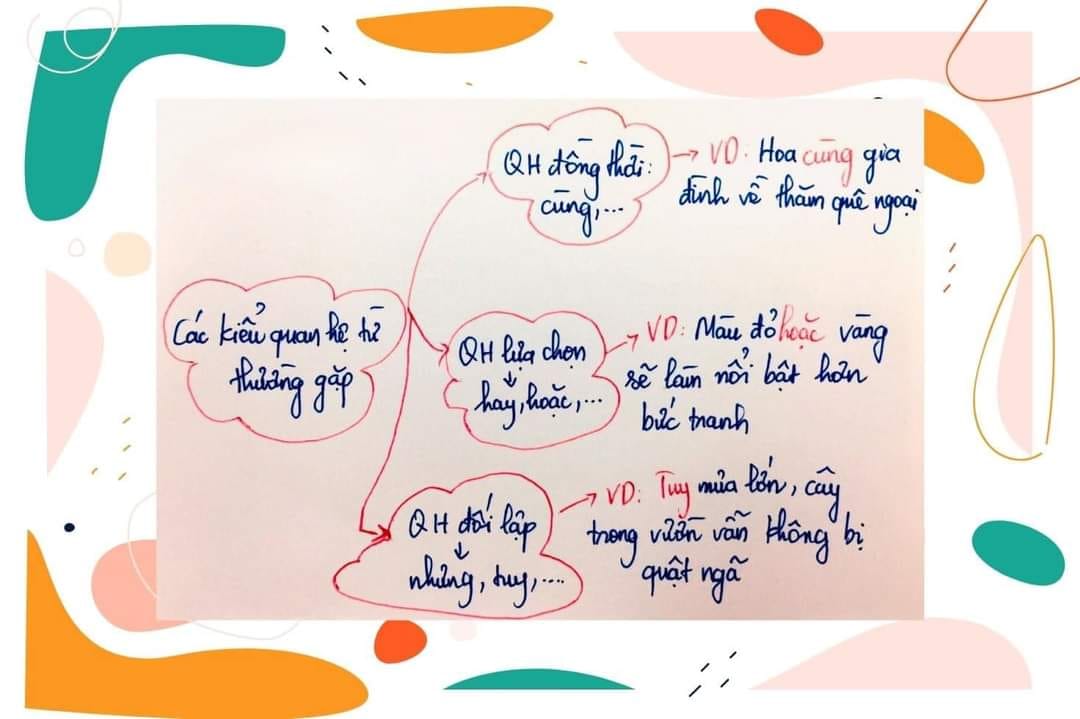 Các kiểu quan hệ từ
thường gặp
QH đồng thời:
cùng,...
→ VD: Hoa cùng gia
đình về thăm quê ngoại
QH lựa chọn
↓
hay, hoặc,...
→ VD: Màu đỏ hoặc vàng
sẽ làm nổi bật hơn
bức tranh
QH đối lập
↓
nhưng, tuy,....
→ VD: Tuy mưa lớn, cây
trong vườn vẫn không bị
quật ngã